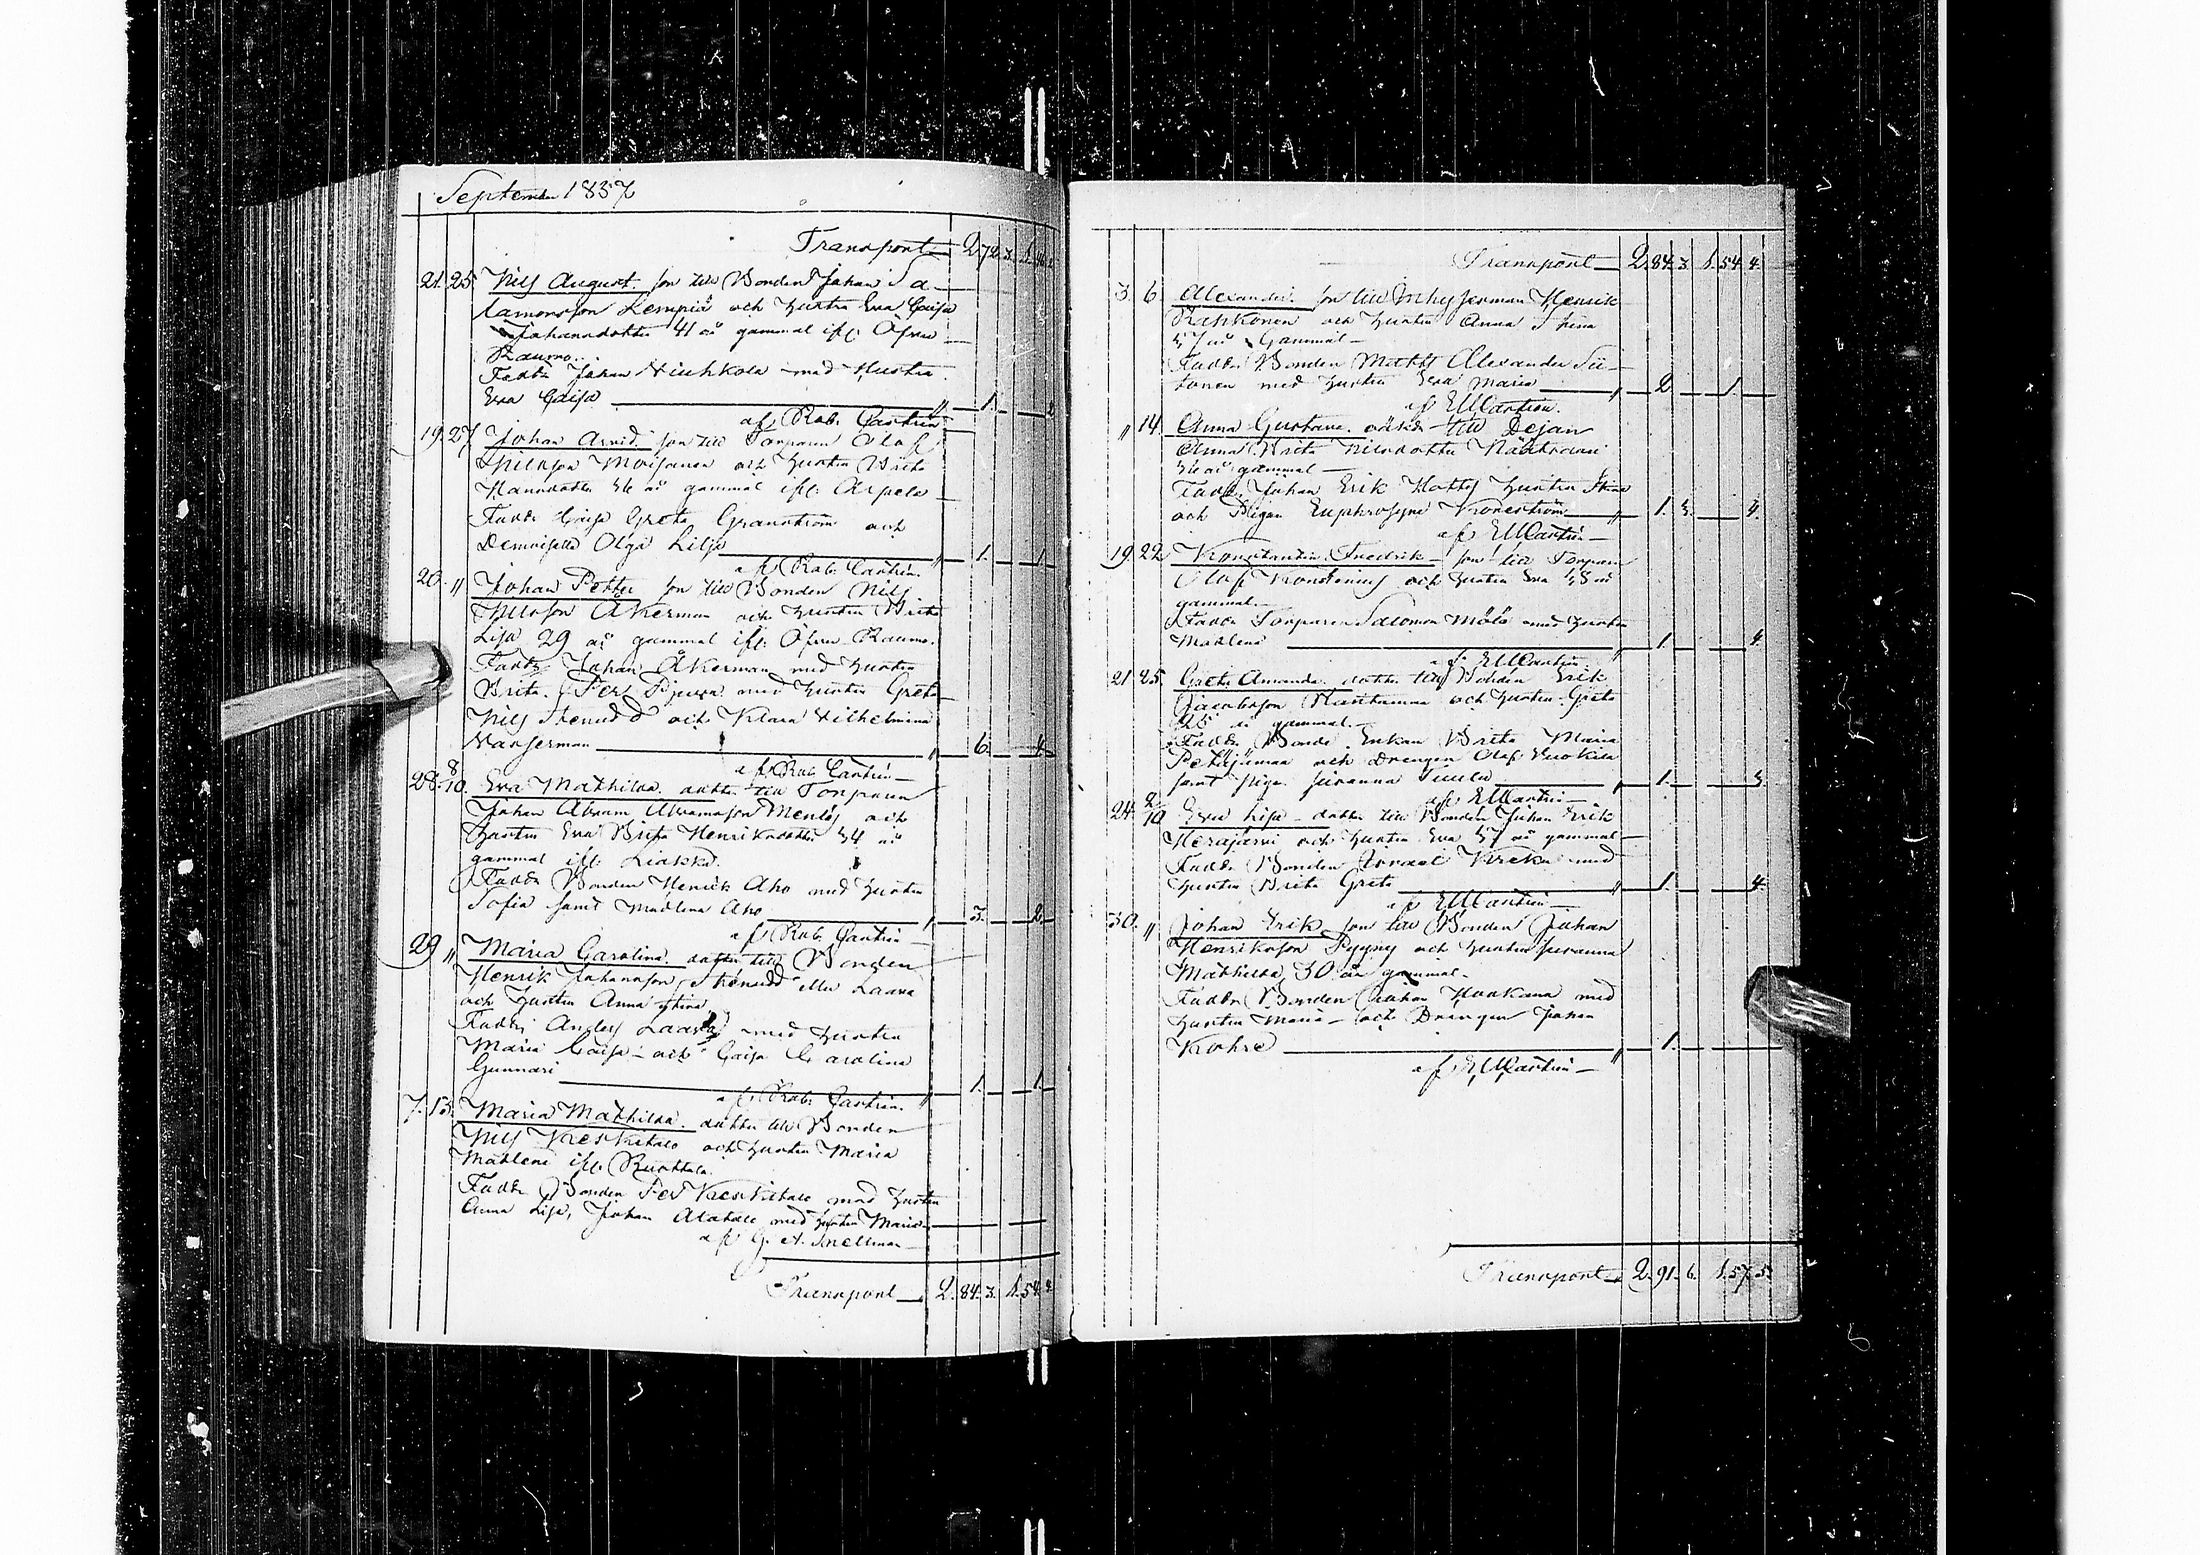 September 1837
Transport 2.72.3.
21. 25. Nils August. son till Bonden Johan Sa-
lamonsson Lempiä och hustru Eva Caisa
Johansdotter 41 år gammal ifl: Öfver
Raumo.
Faddr Johan Niuhkola med Hustru
Eva Caisa 1.
af Rob. Castrén
19. 27. Johan Arvid. son till Torparen Olof
Nilsson Moisanen och hustru Brita
Hansdotter 36 år gammal ifl: Arpela
Faddr Caisa Greta Granström och
Demoiselle Olga Lilja 1. 1.
af Rob. Castrén.
20. " Johan Petter son till Bonden Nils
Nilsson Åkerman och hustru Brita
Lisa 29 år gammal ifl: Öfver Raumo.
Faddr Johan Åkerman med hustru
Brita. Per med hustru Greta
Nils Stenudd och Klara Vilhelmina
6. 4.
af Rob. Castrén
28. 8/10. Eva Mathilda. dotter till Torparen
Johan Abram Abramsson Mentös och
hustru Eva Brita Henriksdotter 34 år
gammal ifl: Liakka.
Faddr Bonden Henrik Aho med hustru
Sofia samt Madlena Aho 3. 2.
af Rob. Castrén
29 " Maria Carolina. dotter till Bonden
Henrik Johansson Stenudd eller Laara
och hustru Anna Stina
Faddr Anders Laara med hustru
Maria Caisa och Caisa Carolina
Gunnari 1. 1.
af Rob. Castrén.
7. 13. Maria Mathilda. dotter till Bonden
Nils Keskitalo och hustru Maria
Madlena ifl:
Faddr Bonden Per Keskitalo med hustru
Anna Lisa, Johan Alatalo med hustru Maria
af G. A. Snellman
Transport 2.84.3. 1.54.4.
Transport 2.84.3. 1.54.4.
3. 6. Alexander. son till Inhysesman Henrik
Rapkonen och hustru Anna Stina
37 år Gammal
Faddr Bonden Matts Alexander Sii-
tonen med hustru Eva Maria 2 1.
af E M Castrén.
" 14. Anna Gustava. oäkta till Pejan
Anna Brita Nilsdotter
36 år gammal
Faddr Johan Erik Hotti hustru Stina
och Pigan Euphrosyne Kroneström 1. 3. 4.
af E M Castrén
19. 22. Konstantin Fredrik son till Torparen
Olof och hustru Eva 48 år
gammal.
Faddr Torparen Salomon Mölö med hustru
Madlena 1. 4.
af E M Castrén
21 25. Greta Amanda. dotter till Bonden Erik
Jacobsson och hustru Greta
25 år gammal.
Faddr Bonde Enkan Brita Maria
Petäjämaa och Drengen Olof Vuokila
samt pigan Susanna Tuulu 1. 3.
af E M Castrén
24. 2/10 Eva Lisa dotter till Bonden Johan Erik
Herajärvi och hustru Eva 37 år gammal
Faddr Bonden Israel Kreku med
hustru Brita Greta 1. 4.
af E M Castrén
30. " Johan Erik son till Bonden Johan
Henriksson Pyyny och hustru Susanna
Mathilda 30 år gammal.
Faddr Bonden Johan Haakana med
hustru Maria och Drengen Johan
Kohre 1.
af E M Castrén
Transport 2.91.6. 1.57.5.